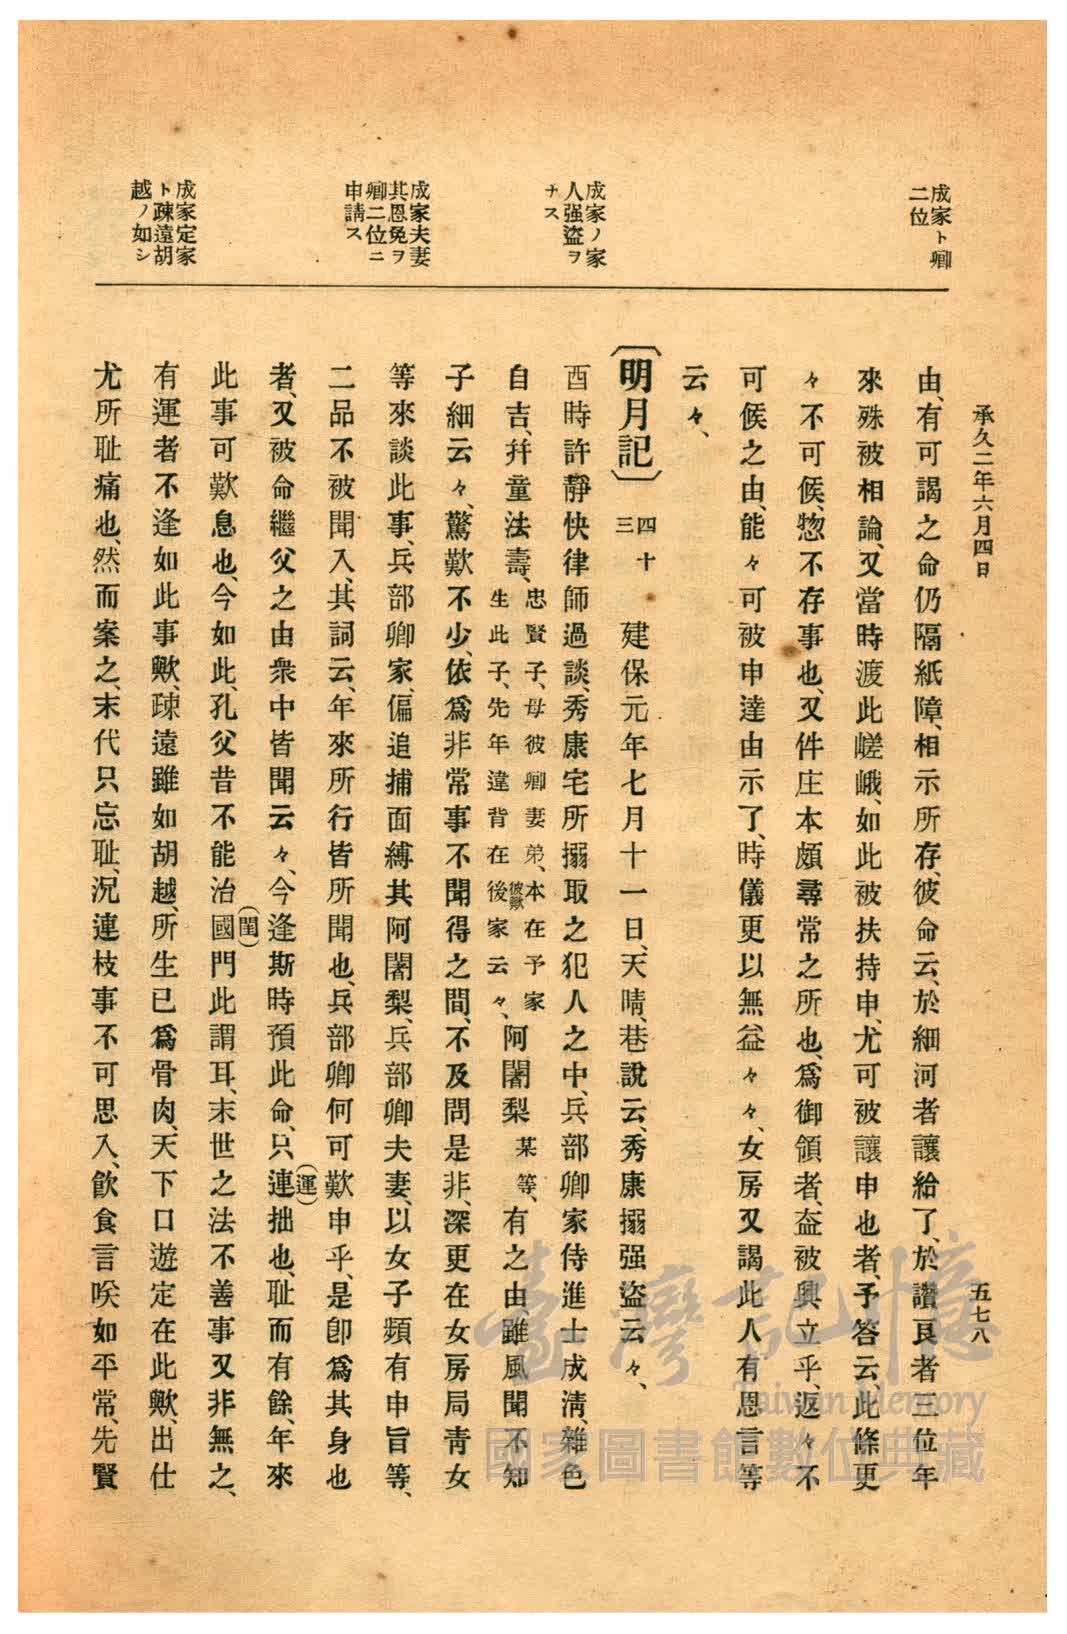 承久二年六月四日
五七八
成家ト卿
二位
成家ノ家
人强盜ヲ
ナス
成家夫妻
其恩免ヲ
卿二位ニ
申請ス
成家定家
ト疎遠胡
越ノ如シ
由、有可謁之命仍隔紙障、相示所存、彼命云、於細河者讓給了、於讚良者三位年
來殊被相論、又當時渡此嵯峨、如此被扶持申、尤可被讓申也者、予答云、此條更
々不可候、惣不存事也、又件庄本頗尋常之所也、爲御領者、益被興立乎、返々不
可候之由、能々可被申達由示了、時儀更以無益々々、女房又謁此人有恩言等
云々、
〔明月記〕 四十
三
建保元年七月十一日、天晴、巷說云、秀康搦强盜云々、
酉時許靜快律師過談、秀康宅所搦取之犯人之中、兵部卿家侍進士成淸、雜色
自吉、幷童法壽、
忠賢子、母彼卿妻弟、本在予家
彼歟
生此子、先年違背在後家云々、
阿闍梨某等、有之由、雖風聞不知
子細云々、驚歎不少、依爲非常事不聞得之間、不及問是非、深更在女房局靑女
等來談此事、兵部卿家、偏追捕面縛其阿闍梨、兵部卿夫妻、以女子頻、有申旨等、
二品不被聞入、其詞云、年來所行皆所聞也、兵部卿何可歎申乎、是卽爲其身也
者、又被命繼父之由衆中皆聞云々、今逢斯時預此命、只連(運)拙也、耻而有餘、年來
此事可歎息也、今如此、孔父昔不能治國(閨)門此謂耳、末世之法不善事又非無之、
有運者不逢如此事歟、疎遠雖如胡越、所生已爲骨肉、天下口遊定在此歟、出仕
尤所耻痛也、然而案之、末代只忘耻、況連枝事不可思入、飮食言咲如平常、先賢
臺灣記憶
Taiwan Memory
國家圖書館數位典藏